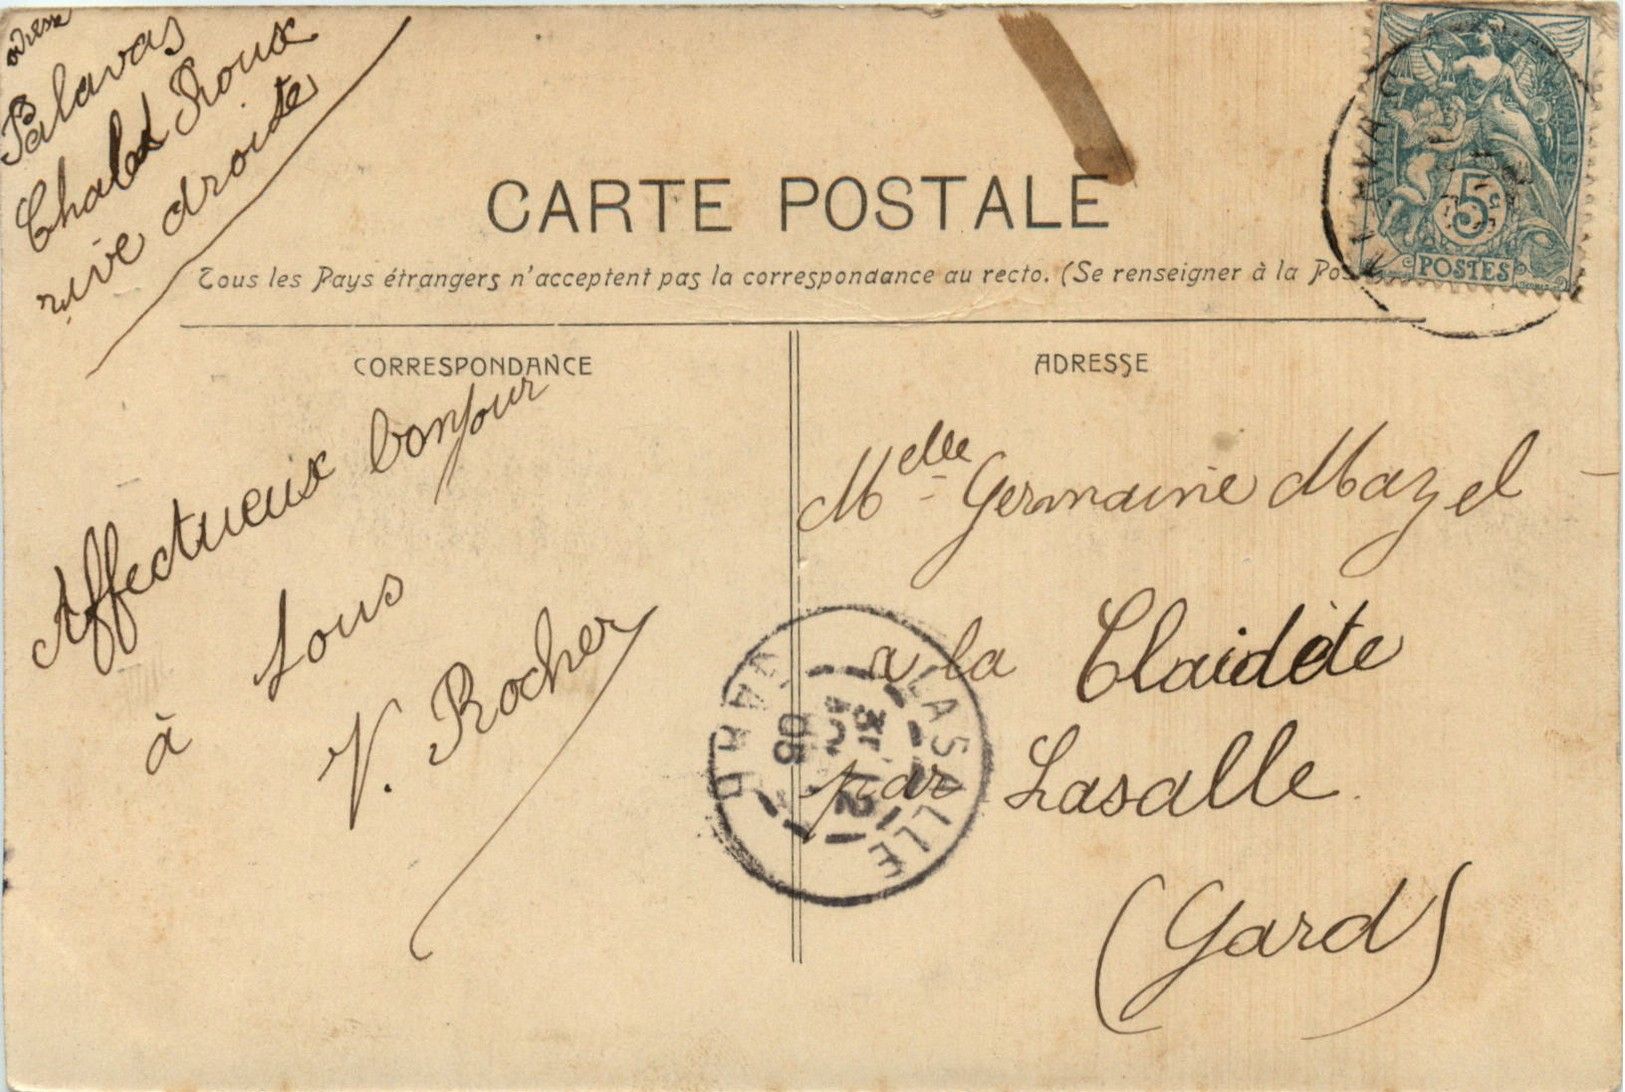 adresse
Palavas
Chalet Roux
rive droite
CARTE POSTALE
Tous les Pays étrangers n'acceptent pas la correspondance au recto. (Se renseigner à la Pos
5
POSTES
CORRESPONDANCE
Affectueux bonjour
à tous
V. Rocher
ADRESSE
Melle Germaine Mazel
a la Claidète
par Lasalle
(Gard)
LASALLE
GARD
05